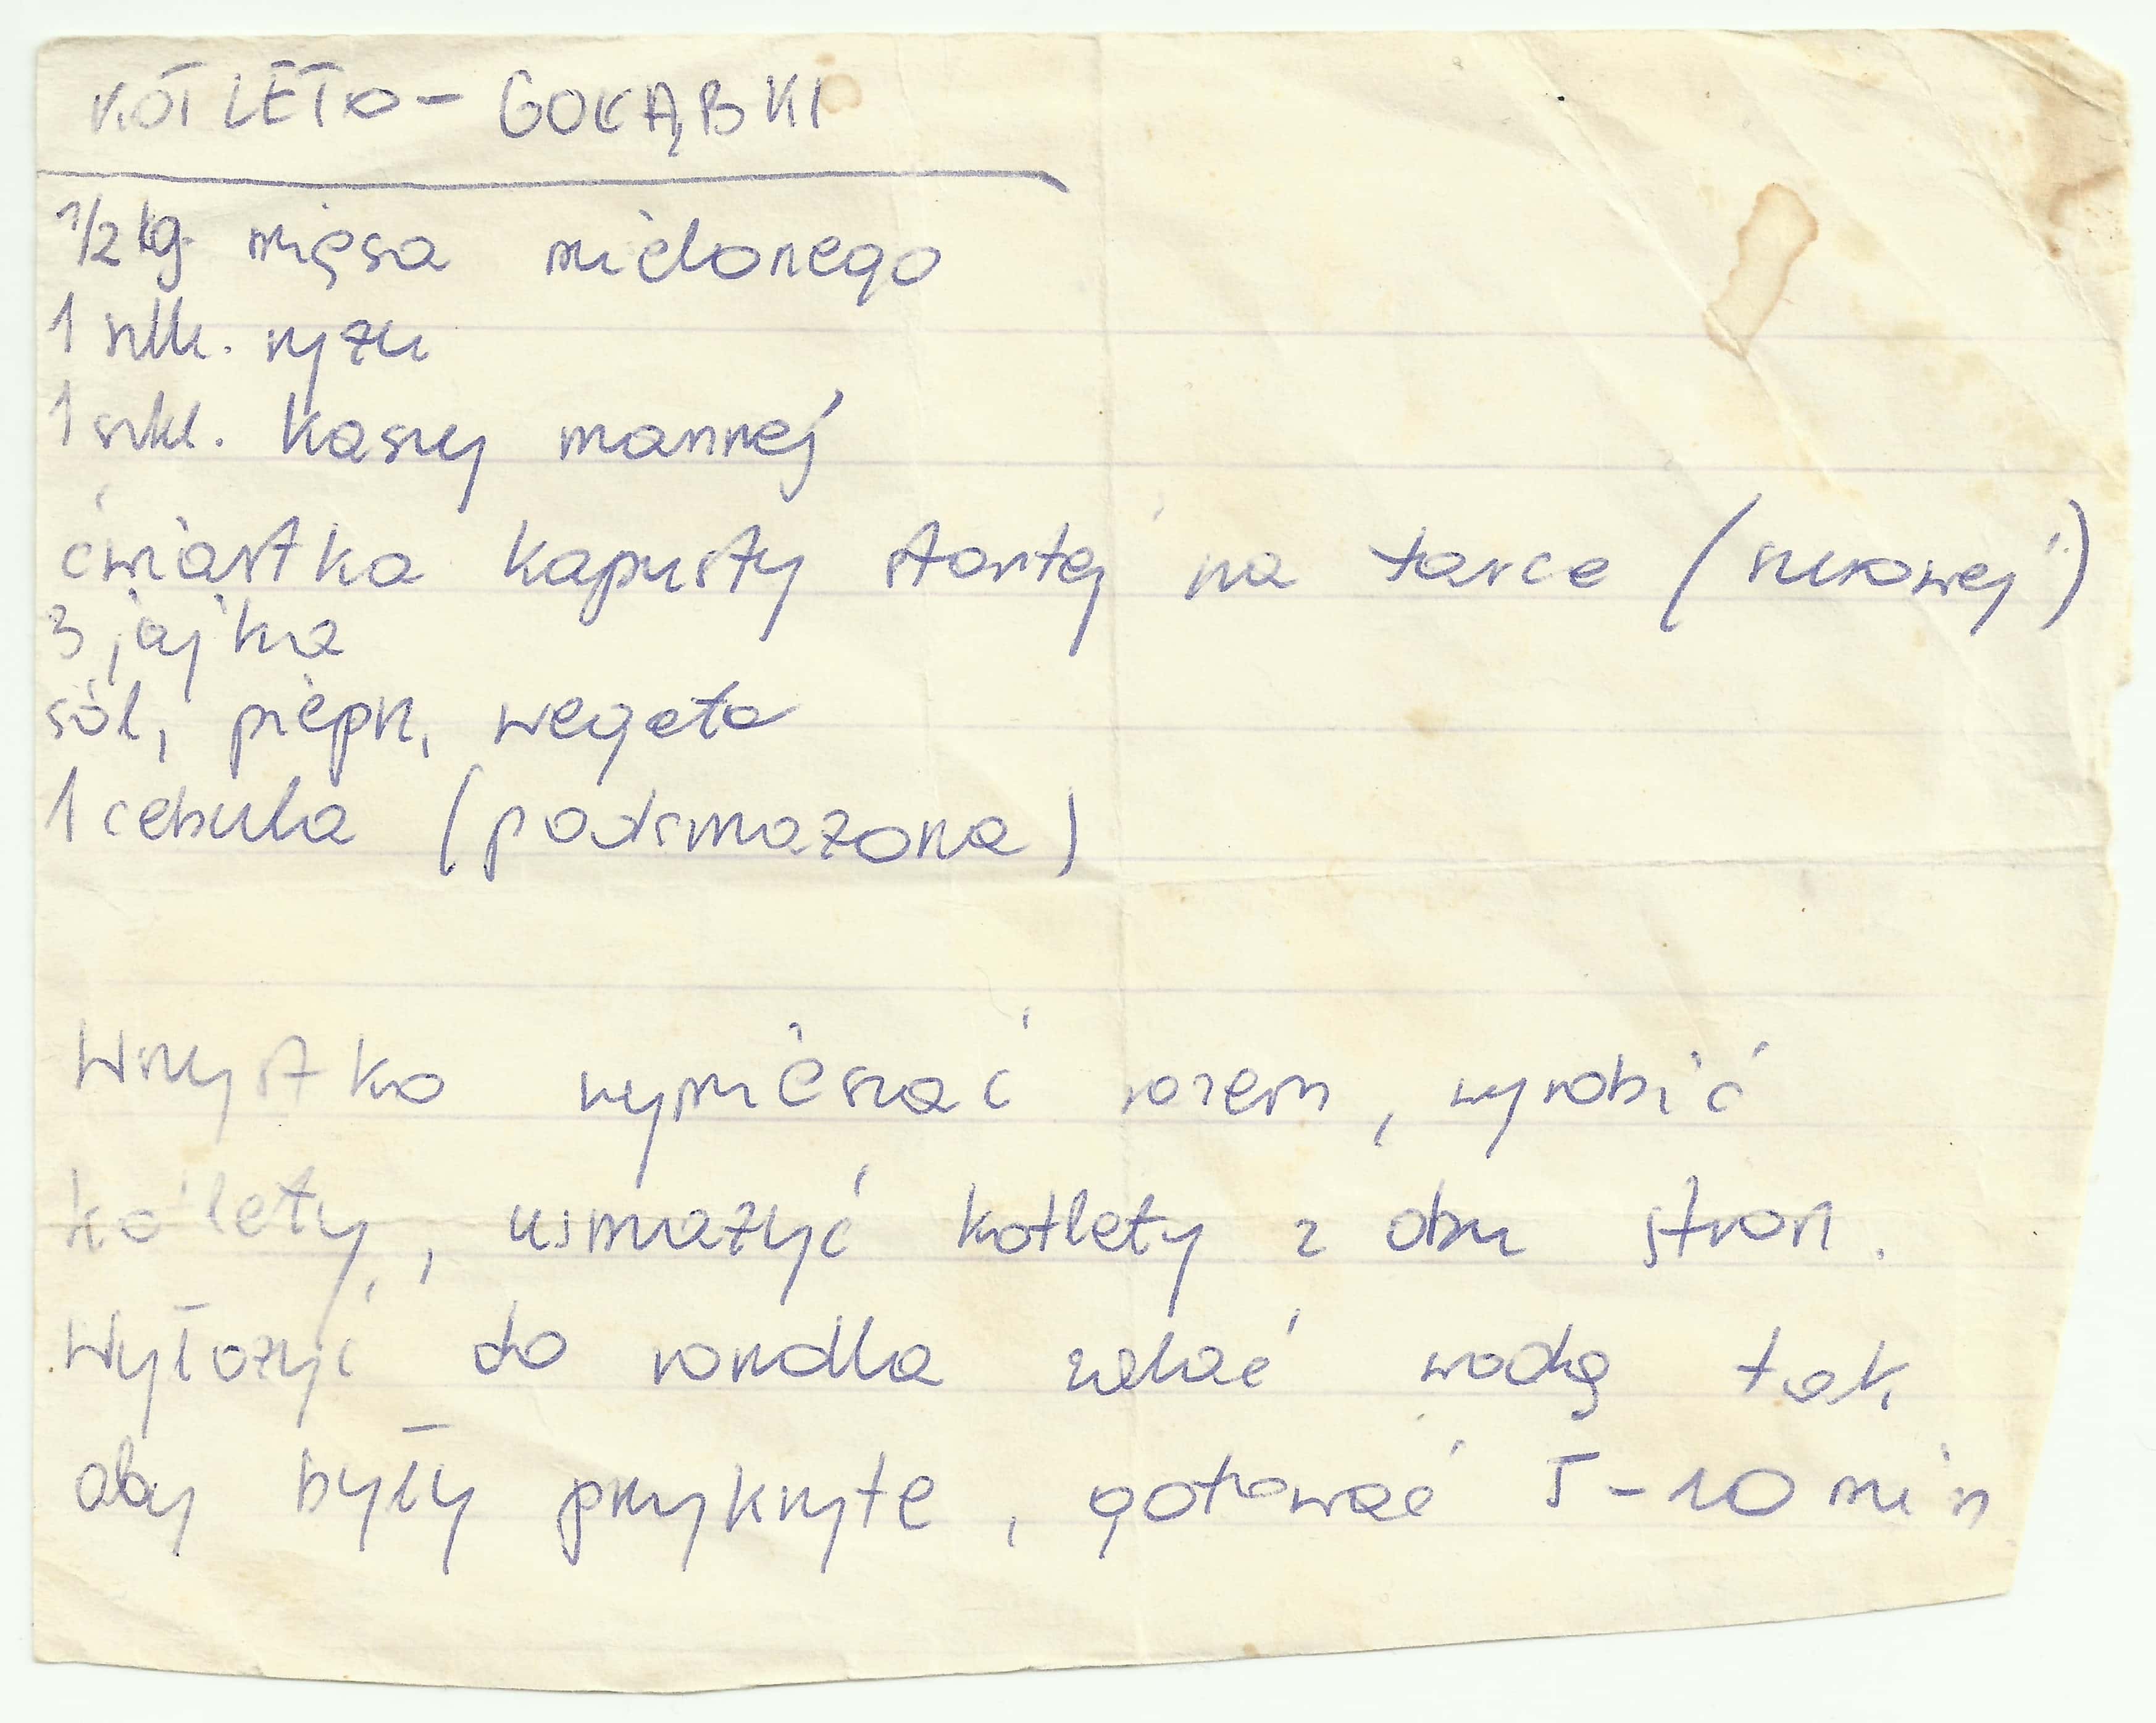 KOTLETO - GOŁĄBKI
1/2 kg. mięsa mielonego
1 szkl. ryzu
1 szkl. kaszy mannej
ćwiartka kapusty startej na tarce (surowej)
3 jajka
sól, pieprz, wegeta
1 cebula (podsmazona)
Wszystko wymieszać razem, wyrobić
kotlety, usmazyć kotlety z obu stron.
Wyłozyć do rondla zalać wodą tak
aby były przykryte, gotować 5-10 min